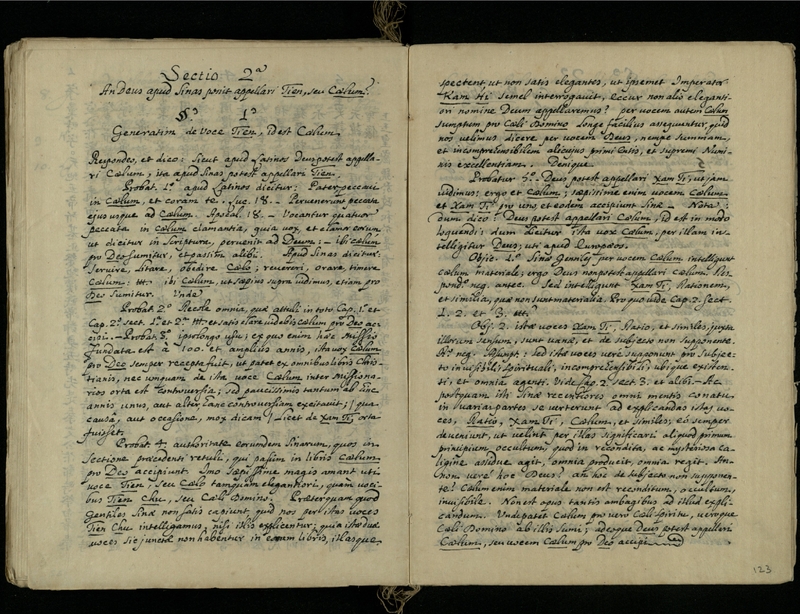 Sectio 2ª
An Deus apud Sinas ponit appellari Tien, seu Cælum?
§us 1us
Generatim de Voce Tien, id est Cælum.
Respondeo, et dico: Sicut apud Latinos Deus potest appella-
ri Cælum, ita apud Sinas potest appellari Tien.
Probat. 1º apud Latinos dicitur: Pater peccavi
in Cælum, et coram te. Luc. 18. Pervenerunt peccata
ejus usque ad Cælum. Apocal. 18. Vocantur quatuor
peccata in cælum clamantia, quia vox, et clamor eorum
ut dicitur in Scriptura, pervenit ad Deum: ibi cælum
pro Deo sumitur, et passim alibi. Apud Sinas dicitur:
Servire, litare, obedire Cælo; revereri, orare, timere
Cælum: ubi Cælum, ut sæpius supra vidimus, etiam pro
Deo sumitur. Unde
Probat. 2º Recole omnia, quæ attuli in toto Cap. 1º et
Cap. 2º sect. 1º et 2º et satis clare videbis cælum pro Deo ac-
cipi. Probat. 3º ex quo enim hæc Missio
fundata est à 100. et amplius annis, ista vox Cælum
pro Deo semper recepta fuit, ut patet ex omnibus libris Chris-
tianis, nec unquam de ista voce Cælum inter Missiona-
rios orta est controversia; sed paucissimis tantum ab hinc
annis unus, aut alter controversiam excitavit; qua
causa, aut occasione, mox dicam licet de Xam Ti, orta
fuisset.
Probat. 4º authoritate eorumdem Sinarum, quos in
Sectione præcedenti retuli, qui passim in libris Cælum
pro Deo accipiunt. Imo sæpissime magis amant uti
voce Tien, seu Cælo tanquam elegantiori, quam voci-
bus Tien Chu, seu Cæli Domino. Præterquam quod
Gentiles Sinæ non satis capiunt, quid nos per istas voces
Tien Chu intelligamus, nisi illis explicentur; quia istæ duæ
voces sic junctæ non habentur in eorum libris, illasque
spectent ut non satis elegantes, ut ipsemet Imperator
Kam Hi semel interrogavit, cur non alio eleganti-
ori nomine Deum appellaremus? per vocem autem Cælum
sumptam pro Cæli Domino longe facilius assequuntur, quid
nos velimus dicere per vocem Deus, nempe summam,
et incomprehensibilem alicujus primi Entis, et supremi Numi-
nis excellentiam. Denique.
Probatur 5º Deus potest appellari Xam Ti, ut jam
vidimus; ergo et Cælum; sæpissime enim vocem Cælum
et Xam Ti pro uno et eodem accipiunt Sinæ. Nota:
dum dico: Deus potest appellari Cælum, id est in modo
loquendi: dum dicitur ista vox Cælum, per illam in-
telligitur Deus; uti apud Europæos.
Objic. 1º Sinæ Gentiles per vocem Cælum intelligunt
cælum materiale; ergo Deus non potest appellari cælum. Res-
pond. neg. antec. Sed intelligunt Xam Ti, Rationem,
et similia, quæ non sunt materialia. Pro quo vide Cap. 2. sect.
1. 2. et 3.
Obj. 2. istæ voces Xam Ti, Ratio, et similes, juxta
illorum sensum, sunt vanæ, et de subjecto non supponente.
Rs. neg. assumpt: sed istæ voces vere supponunt pro subjec-
to invisibili, spirituali, incomprehensibili, ubique existen-
ti, et omnia agenti. Vide Cap. 2. sect. 3. et alibi. Ac
postquam isti Sinæ recentiores omni mentis conatu
in varias partes se verterunt ad explicandas istas vo-
ces, Ratio, Xam Ti, Cælum, et similes, eo semper
deveniunt, ut velint per illas significari aliquod primum
principium, occultum, quod in recondita, ac mysteriosa ca-
ligine assidue agit, omnia producit, omnia regit. An-
non vere hoc Deus? an hoc de subjecto non supponen-
te? Cælum enim materiale non est reconditum, occultum,
invisibile. Non est opus tantis ambagibus ad illud expli-
candum. Unde patet Cælum pro vero Cæli Spiritu, veroque
Cæli Domino ab illis sumi; adeoque Deus potest appellari
Cælum, seu vocem Cælum pro Deo accipi.
123